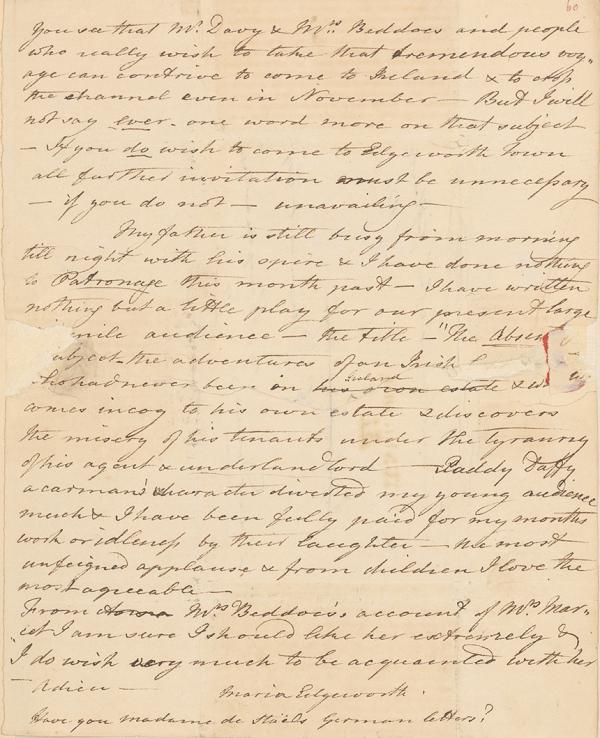 60
You see that Mr. Davy & Mrs. Beddoes and people
who really wish to take that tremendous voy„
age can contrive to come to Ireland & to cross
the channel even in November — But I will
not say ever - one word more on that subject
— If you do wish to come to Edgeworth Town
all farther invitation must be unnecessary
— if you do not — unavailing —
My father is still busy from morning
till night with his spire & I have done nothing
to Patronage this month past — I have written
nothing but a little play for our present large
audience — the title — "The Absen
the adventures of an Irish
had never been in his own estate Ireland &
comes incog to his own estate & discovers
the misery of his tenants under the tyranny
of his agent & underlandlord — Paddy Daffy
a carman's character diverted my young audience
much & I have been fully paid for my months
work or idleness by their laughter — the most
unfeigned applause & from children I love the
most agreeable —
From Mrs Beddoes's account of Mrs Mar„
cet I am sure I should like her extremely &
I do wish very much to be acquainted with her
— Adieu —
Maria Edgeworth.
Have you madame de Staëls German letters?